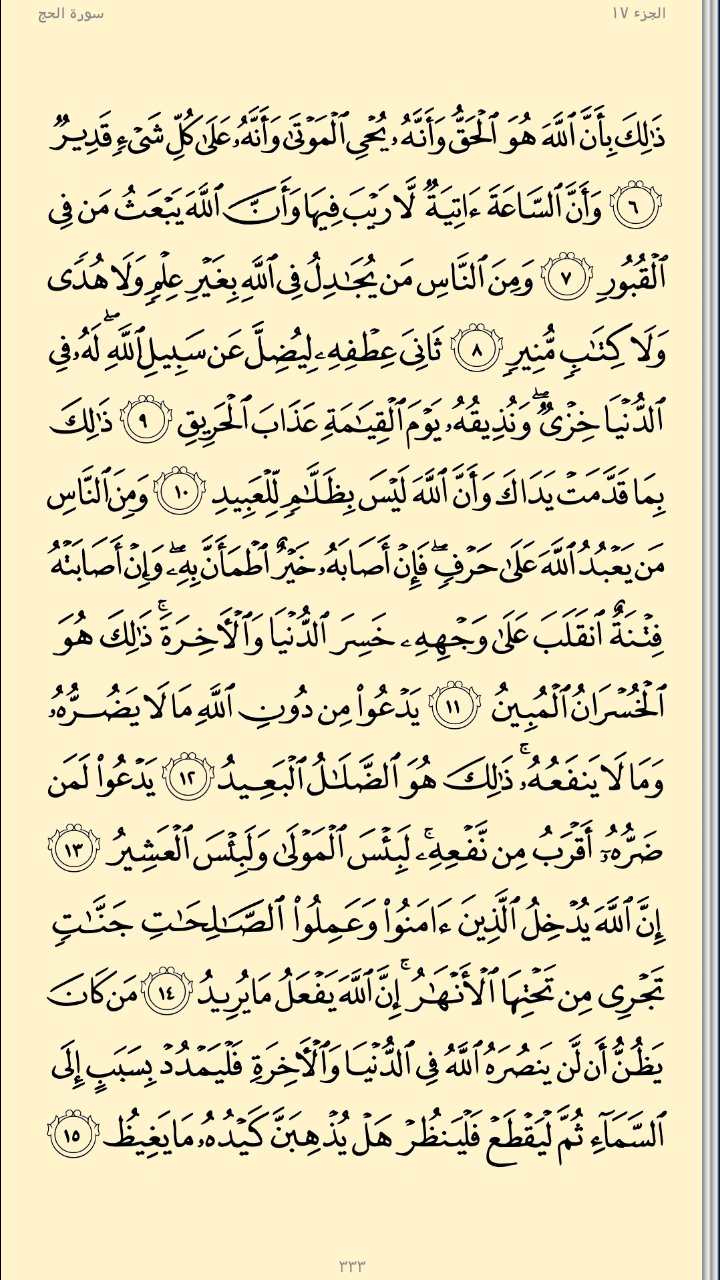 الجزء ١٧
سورة الحج
ذَٰلِكَ بِأَنَّ ٱللَّهَ هُوَ ٱلْحَقُّ وَأَنَّهُۥ يُحْىِ ٱلْمَوْتَىٰ وَأَنَّهُۥ عَلَىٰ كُلِّ شَىْءٍ قَدِيرٌ
٦ وَأَنَّ ٱلسَّاعَةَ ءَاتِيَةٌ لَّا رَيْبَ فِيهَا وَأَنَّ ٱللَّهَ يَبْعَثُ مَن فِى
ٱلْقُبُورِ ٧ وَمِنَ ٱلنَّاسِ مَن يُجَٰدِلُ فِى ٱللَّهِ بِغَيْرِ عِلْمٍ وَلَا هُدًى
وَلَا كِتَٰبٍ مُّنِيرٍ ٨ ثَانِىَ عِطْفِهِۦ لِيُضِلَّ عَن سَبِيلِ ٱللَّهِ ۖ لَهُۥ فِى
ٱلدُّنْيَا خِزْىٌ ۖ وَنُذِيقُهُۥ يَوْمَ ٱلْقِيَٰمَةِ عَذَابَ ٱلْحَرِيقِ ٩ ذَٰلِكَ
بِمَا قَدَّمَتْ يَدَاكَ وَأَنَّ ٱللَّهَ لَيْسَ بِظَلَّٰمٍ لِّلْعَبِيدِ ١٠ وَمِنَ ٱلنَّاسِ
مَن يَعْبُدُ ٱللَّهَ عَلَىٰ حَرْفٍ ۖ فَإِنْ أَصَابَهُۥ خَيْرٌ ٱطْمَأَنَّ بِهِۦ ۖ وَإِنْ أَصَابَتْهُ
فِتْنَةٌ ٱنقَلَبَ عَلَىٰ وَجْهِهِۦ خَسِرَ ٱلدُّنْيَا وَٱلْءَاخِرَةَ ۚ ذَٰلِكَ هُوَ
ٱلْخُسْرَانُ ٱلْمُبِينُ ١١ يَدْعُوا۟ مِن دُونِ ٱللَّهِ مَا لَا يَضُرُّهُۥ
وَمَا لَا يَنفَعُهُۥ ۚ ذَٰلِكَ هُوَ ٱلضَّلَٰلُ ٱلْبَعِيدُ ١٢ يَدْعُوا۟ لَمَن
ضَرُّهُۥٓ أَقْرَبُ مِن نَّفْعِهِۦ ۚ لَبِئْسَ ٱلْمَوْلَىٰ وَلَبِئْسَ ٱلْعَشِيرُ ١٣
إِنَّ ٱللَّهَ يُدْخِلُ ٱلَّذِينَ ءَامَنُوا۟ وَعَمِلُوا۟ ٱلصَّٰلِحَٰتِ جَنَّٰتٍ
تَجْرِى مِن تَحْتِهَا ٱلْأَنْهَٰرُ ۚ إِنَّ ٱللَّهَ يَفْعَلُ مَا يُرِيدُ ١٤ مَن كَانَ
يَظُنُّ أَن لَّن يَنصُرَهُ ٱللَّهُ فِى ٱلدُّنْيَا وَٱلْءَاخِرَةِ فَلْيَمْدُدْ بِسَبَبٍ إِلَى
ٱلسَّمَآءِ ثُمَّ لْيَقْطَعْ فَلْيَنظُرْ هَلْ يُذْهِبَنَّ كَيْدُهُۥ مَا يَغِيظُ ١٥
٣٣٣